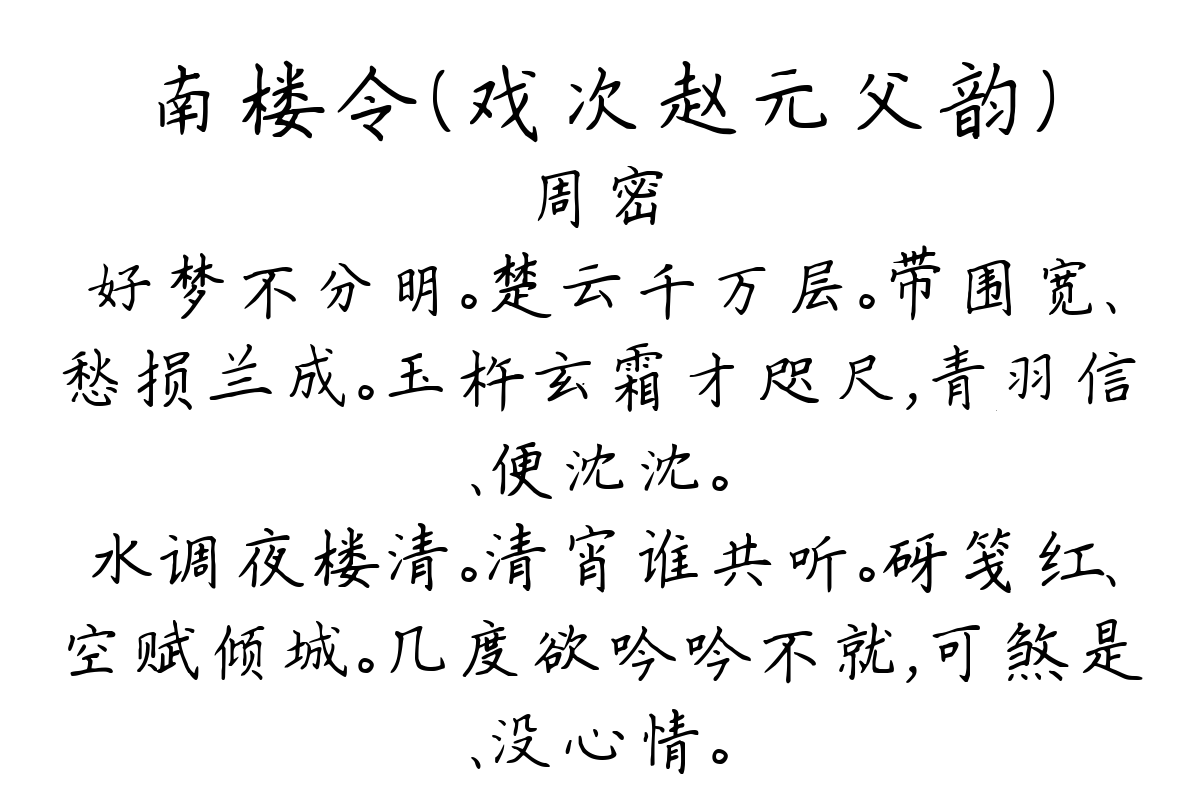 南楼令(戏次赵元父韵)
周密
好梦不分明。楚云千万层。带围宽、
愁损兰成。玉杵玄霜才咫尺,青羽信
、便沈沈。
水调夜楼清。清宵谁共听。砑笺红、
空赋倾城。几度欲吟吟不就,可煞是
、没心情。